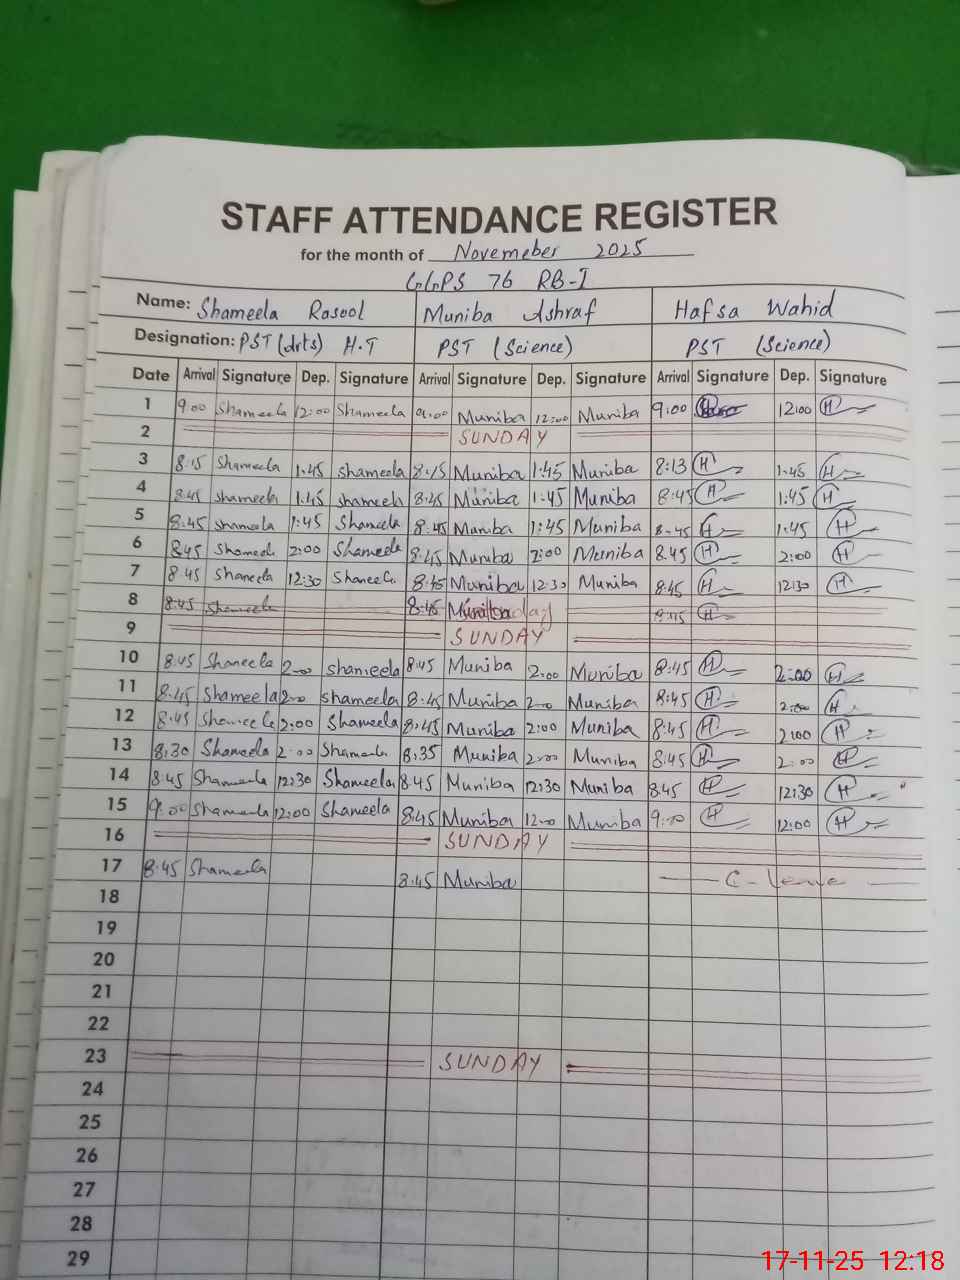 STAFF ATTENDANCE REGISTER
for the month of Novemeber 2025
GGPS 76 RB-I
Name: Shameela Rasool Muniba Ashraf Hafsa Wahid
Designation: PST (Arts) H.T PST (Science) PST (Science)
Date Arrival Signature Dep. Signature Arrival Signature Dep. Signature Arrival Signature Dep. Signature
1 9:00 Shameela 12:00 Shameela 9:00 Muniba 12:00 Muniba 9:00 12:00 H
2 SUNDAY
3 8:15 Shameela 1:45 Shameela 8:15 Muniba 1:45 Muniba 8:13 H 1:45 H
4 8:45 Shameela 1:45 Shameela 8:45 Muniba 1:45 Muniba 8:45 H 1:45 H
5 8:45 Shameela 1:45 Shameela 8:45 Muniba 1:45 Muniba 8:45 H 1:45 H
6 8:45 Shameela 2:00 Shameela 8:45 Muniba 2:00 Muniba 8:45 H 2:00 H
7 8:45 Shameela 12:30 Shameela 8:45 Muniba 12:30 Muniba 8:45 H 12:30 H
8 8:45 Shameela 8:45 Muniba H
9 SUNDAY
10 8:45 Shameela 2:00 Shameela 8:45 Muniba 2:00 Muniba 8:45 H 2:00 H
11 8:45 Shameela 2:00 Shameela 8:45 Muniba 2:00 Muniba 8:45 H 2:00 H
12 8:45 Shameela 2:00 Shameela 8:45 Muniba 2:00 Muniba 8:45 H 2:00 H
13 8:30 Shameela 2:00 Shameela 8:35 Muniba 2:00 Muniba 8:45 H 2:00 H
14 8:45 Shameela 12:30 Shameela 8:45 Muniba 12:30 Muniba 8:45 H 12:30 H
15 9:00 Shameela 12:00 Shameela 8:45 Muniba 12:00 Muniba 9:00 H 12:00 H
16 SUNDAY
17 8:45 Shameela 8:45 Muniba C-Leave
18
19
20
21
22
23 SUNDAY
24
25
26
27
28
29
17-11-25 12:18